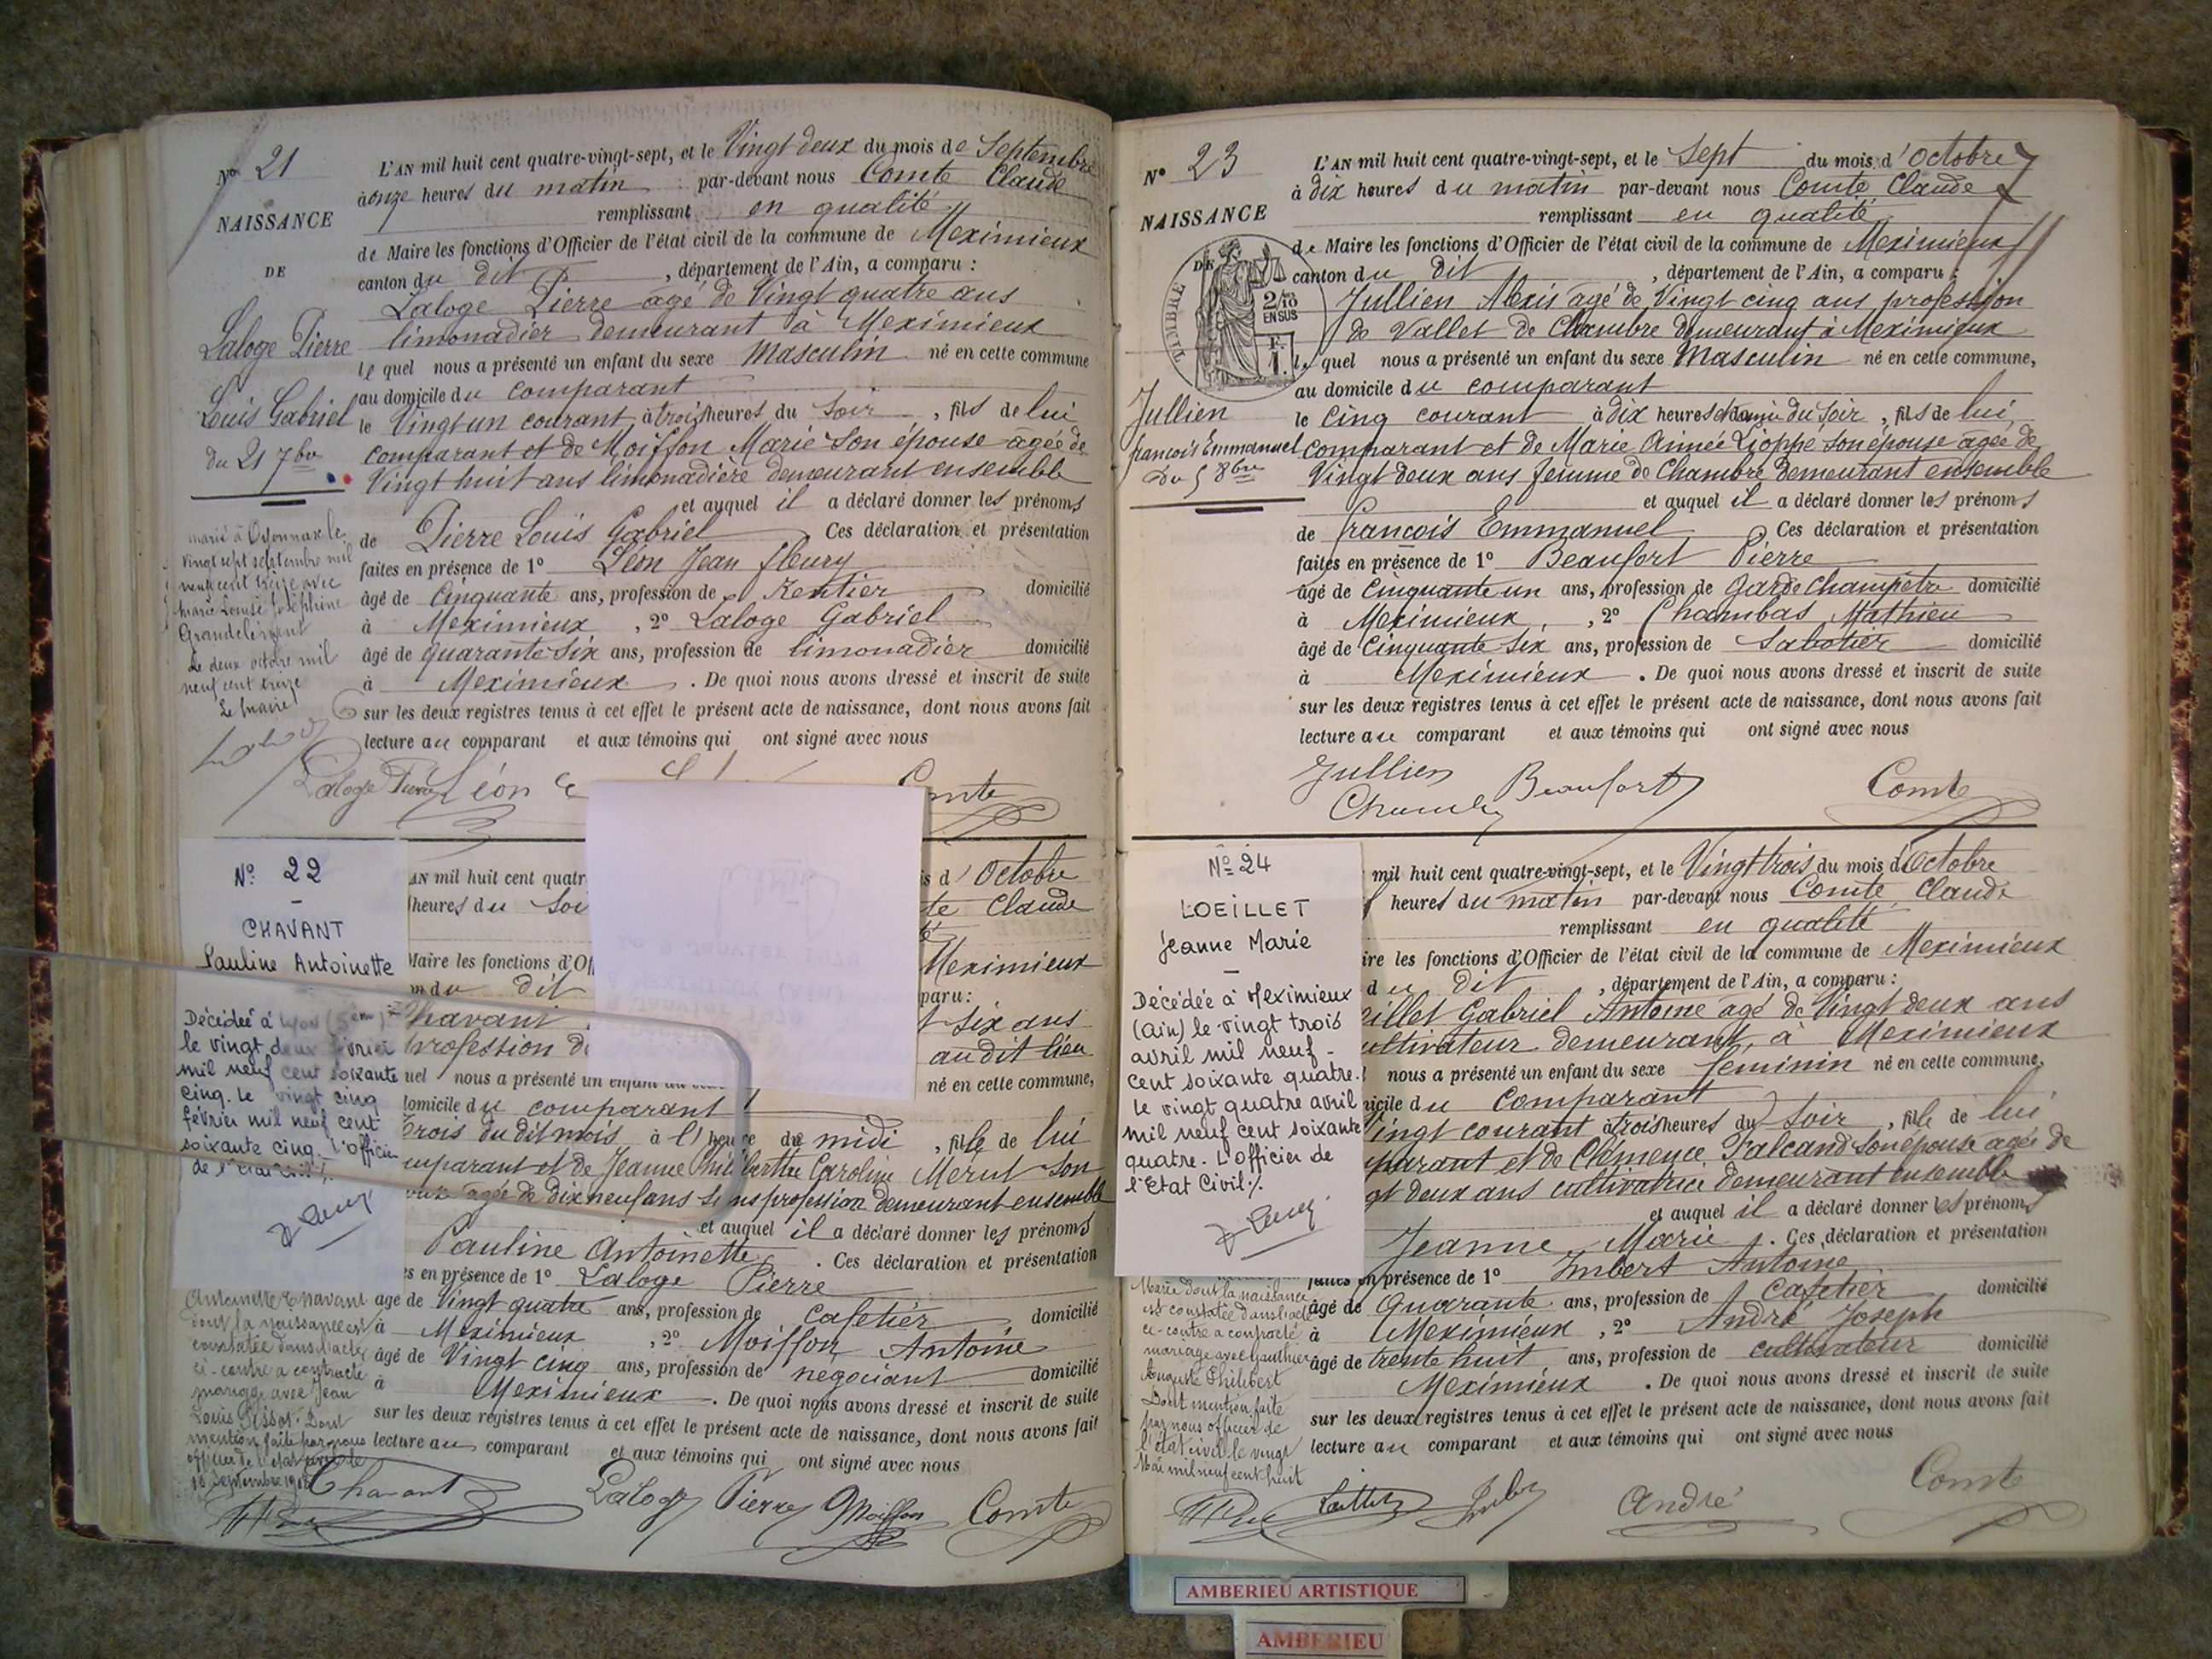 No 21
NAISSANCE
DE
Laloge Pierre
Louis Gabriel
du 21 7bre
marié à Oyonnax le
vingt sept septembre mil
neuf cent treize avec
Marie Louise Joséphine
Grandclément
Le deux octobre mil
neuf cent treize
Le maire
L'AN mil huit cent quatre-vingt-sept, et le Vingt deux du mois de Septembre
à onze heures du matin par-devant nous Comte Claude
remplissant en qualité
de Maire les fonctions d'Officier de l'état civil de la commune de Meximieux
canton du dit , département de l'Ain, a comparu :
Laloge Pierre agé de Vingt quatre ans
limonadier demeurant à Meximieux
le quel nous a présenté un enfant du sexe Masculin né en cette commune
au domicile du comparant
le Vingt un courant à trois heures du soir , fils de lui
comparant et de Moiffon Marie son épouse agée de
Vingt huit ans limonadière demeurant ensemble
et auquel il a déclaré donner les prénoms
de Pierre Louis Gabriel Ces déclaration et présentation
faites en présence de 1° Léon Jean fleury
âgé de Cinquante ans, profession de Rentier domicilié
à Meximieux , 2° Laloge Gabriel
âgé de quarante six ans, profession de limonadier domicilié
à Meximieux . De quoi nous avons dressé et inscrit de suite
sur les deux registres tenus à cet effet le présent acte de naissance, dont nous avons fait
lecture au comparant et aux témoins qui ont signé avec nous
Laloge Pierre Léon Comte
No 22
CHAVANT
Pauline Antoinette
Décédée à Lyon (5ème)
le vingt deux février
mil neuf cent soixante
cinq. Le vingt cinq
février mil neuf cent
soixante cinq. L'officier
de l'Etat Civil
Antoinette Chavant
dont la naissance est
constatée dans l'acte
ci-contre a contracté
mariage avec Jean
Louis Dont
mention faite par nous
officier de l'état civil le
Septembre
AN mil huit cent quatr
heures du Soi
Maire les fonctions d'Of
du dit
Chavant
Profession de
uel nous a présenté un enfant
omicile du comparant
Trois du dit mois à l' heure de midi , fille de lui
mparant et de Jeanne Philiberthe Caroline Merut son
agée de dix neuf ans sans profession demeurant ensemble
et auquel il a déclaré donner les prénoms
Pauline Antoinette . Ces déclaration et présentation
es en présence de 1° Laloge Pierre
age de Vingt quatre ans, profession de Cafetier domicilié
à Meximieux , 2° Moiffon Antoine
âgé de Vingt cinq ans, profession de negociant domicilié
à Meximieux . De quoi nous avons dressé et inscrit de suite
sur les deux registres tenus à cet effet le présent acte de naissance, dont nous avons fait
lecture au comparant et aux témoins qui ont signé avec nous
s d' Octobre
te Claude
Meximieux
paru :
t six ans
au dit lieu
né en cette commune,
Chavant Laloge Pierre Moiffon Comte
N° 23
NAISSANCE
DE
TIMBRE
2/10
EN SUS
Jullien
françois Emmanuel
Du 5 8bre
L'AN mil huit cent quatre-vingt-sept, et le Sept du mois d'Octobre
à dix heures du matin par-devant nous Comte Claude
remplissant en qualité
de Maire les fonctions d'Officier de l'état civil de la commune de Meximieux
canton du dit , département de l'Ain, a comparu :
Jullien Alexis agé de Vingt cinq ans profession
de Vallet de Chambre demeurant à Meximieux
le quel nous a présenté un enfant du sexe Masculin né en cette commune,
au domicile du comparant
le Cinq courant à dix heures et demie du soir , fils de lui
comparant et de Marie Aimée Lioppe son épouse agée de
Vingt deux ans femme de Chambre demeurant ensemble
et auquel il a déclaré donner les prénoms
de françois Emmanuel Ces déclaration et présentation
faites en présence de 1° Beaufort Pierre
âgé de Cinquante un ans, profession de Garde Champetre domicilié
à Meximieux , 2° Chambas Mathieu
âgé de Cinquante six ans, profession de Sabotier domicilié
à Meximieux . De quoi nous avons dressé et inscrit de suite
sur les deux registres tenus à cet effet le présent acte de naissance, dont nous avons fait
lecture au comparant et aux témoins qui ont signé avec nous
Jullien Beaufort Comte
No 24
LOEILLET
Jeanne Marie
Décédée à Meximieux
(Ain) le vingt trois
avril mil neuf-
cent soixante quatre.
Le vingt quatre avril
mil neuf cent soixante
quatre. L'officier de
l'Etat Civil ./.
Marie dont la naissance
est constatée dans l'acte
ci-contre a contracté
mariage avec Gauthier
Auguste Philibert
Dont mention faite
par nous officier de
l'état civil le vingt
Mai mil neuf cent huit
mil huit cent quatre-vingt-sept, et le Vingt trois du mois d'Octobre
heures du matin par-devant nous Comte Claude
remplissant en qualité
ire les fonctions d'Officier de l'état civil de la commune de Meximieux
du dit , département de l'Ain, a comparu :
illet Gabriel Antoine agé de Vingt deux ans
ultivateur demeurant à Meximieux
nous a présenté un enfant du sexe feminin né en cette commune,
icile du Comparant
Vingt courant à trois heures du soir , fille de lui
parant et de Clémence Falcand son épouse agée de
gt deux ans cultivatrice demeurant ensemble
et auquel il a déclaré donner les prénoms
Jeanne Marie . Ces déclaration et présentation
faites en présence de 1° Imbert Antoine
âgé de Quarante ans, profession de Cafetier domicilié
à Meximieux , 2° André Joseph
âgé de trente huit ans, profession de cultivateur domicilié
Meximieux . De quoi nous avons dressé et inscrit de suite
sur les deux registres tenus à cet effet le présent acte de naissance, dont nous avons fait
lecture au comparant et aux témoins qui ont signé avec nous
André Comte
AMBERIEU ARTISTIQUE
AMBERIEU